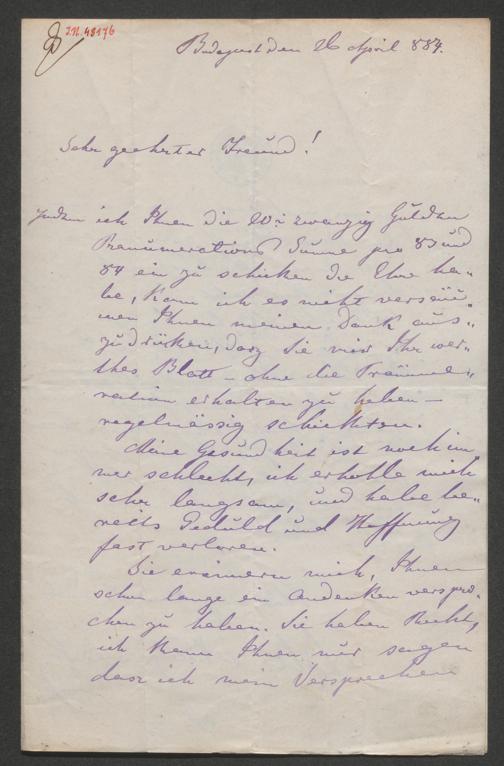 I.N. 48176
Budapest den 26 April 884.
Sehr geehrter Freund!
Indem ich Ihnen die 20 i. zwanzig Gulden
Pränumerations Summe pro 83 und
84 ein zu schicken die Ehre ha„
be, kann ich es nicht versäu„
men Ihnen meinen Dank aus„
zudrücken, dasz Sie mir Ihr wer„
thes Blatt – ohne die Pränume„
ration erhalten zu haben –
regelmässig schickten.
Meine Gesundheit ist noch im„
mer schlecht, ich erholle mich
sehr langsam, und habe be„
reits Geduld und Hoffnung
fast verloren.
Sie erinnern mich, Ihnen
schon lange ein Andenken verspro„
chen zu haben. Sie haben Recht,
ich kann Ihnen nur sagen
dasz ich mein Versprechen